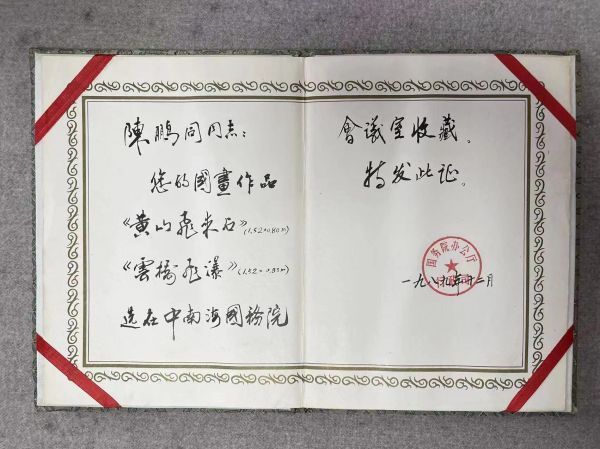 陳鵬同同志：
您的國畫作品
《黄山飛来石》(1.52×0.80m)
《雲橋飛瀑》(1.52×0.83m)
选在中南海國務院
會議室收藏。
特发此证。
国务院办公厅
一九八九年十二月